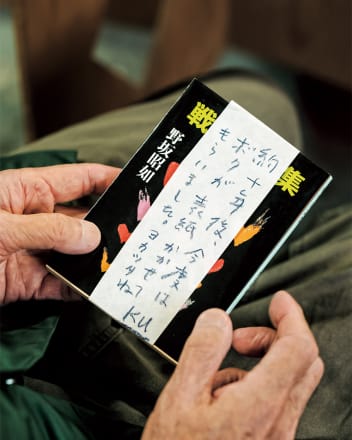 戦
集
野坂昭如
約十年後、今度は
ボクが表紙かかせて
もらいました。ヨカッタね
KU